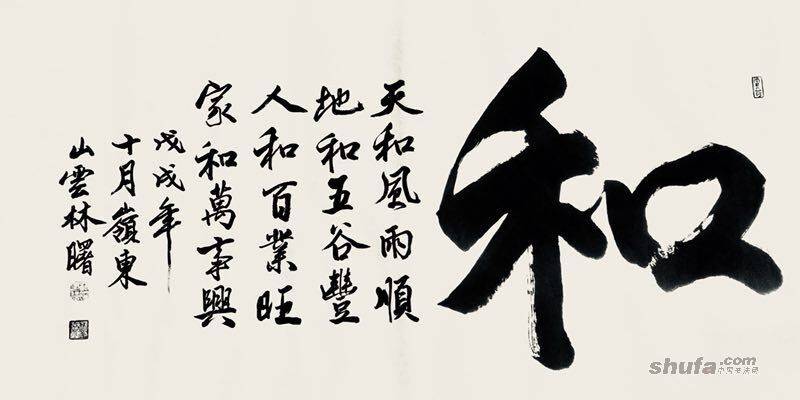 和
天和風雨順
地和五谷豐
人和百業旺
家和萬事興
戊戌年
十月嶺東
山雲林曙
shufa.com
中国书法网